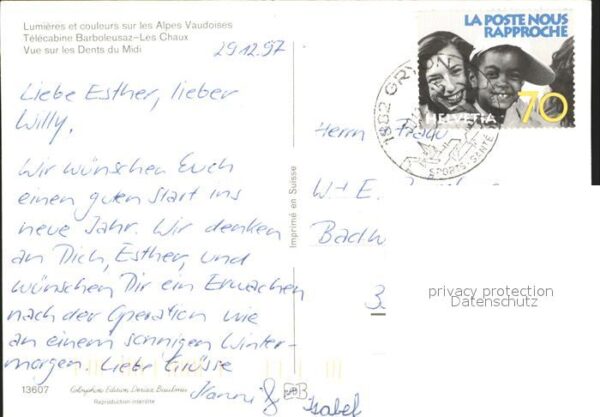 Lumières et couleurs sur les Alpes Vaudoises
Télécabine Barboleusaz–Les Chaux
Vue sur les Dents du Midi
29.12.97
Liebe Esther, lieber
Willy,
Wir wünschen Euch
einen guten Start ins
neue Jahr. Wir denken
an Dich, Esther, und
wünschen Dir ein Erwachen
nach der Operation wie
an einem sonnigen Winter-
morgen. Liebe Grüsse
Hanni &
Isabel
13607
Edition
Reproduction interdite
Imprimé en Suisse
LA POSTE NOUS
RAPPROCHE
HELVETIA
70
1882 GRYON
SPORTS SANTÉ
Herrn Frau
W + E.
Badw
3
privacy protection
Datenschutz